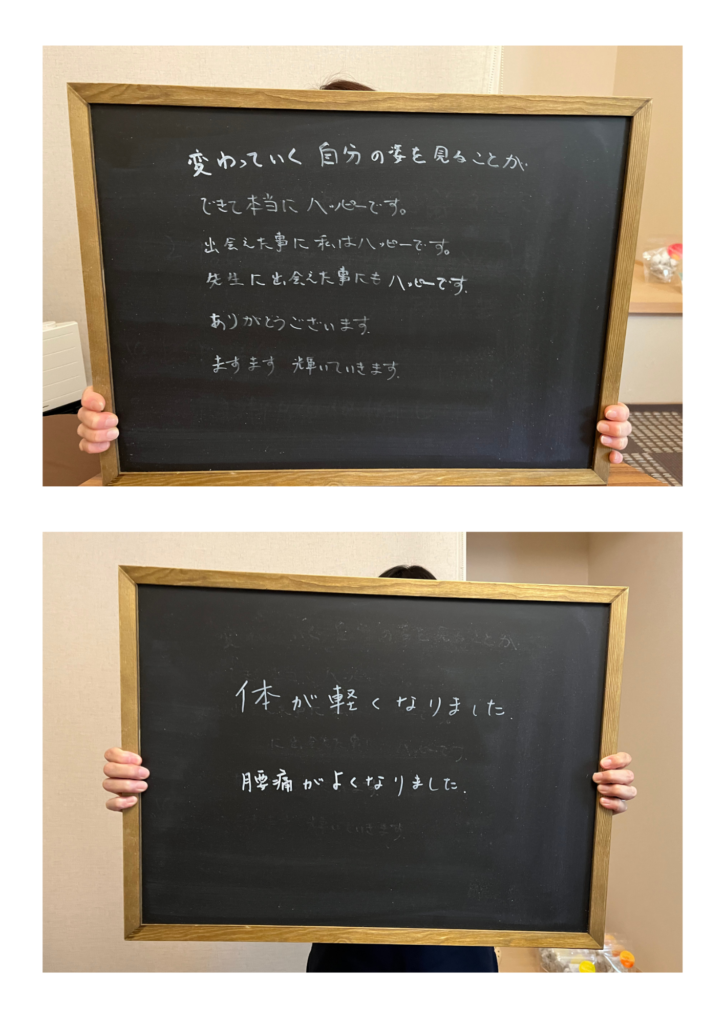 変わっていく 自分の姿を見ることが
できて本当に ハッピーです。
出会えた事に 私はハッピーです。
先生に出会えた事にも ハッピーです。
ありがとうございます。
ますます 輝いていきます。
体が軽くなりました。
腰痛がよくなりました。